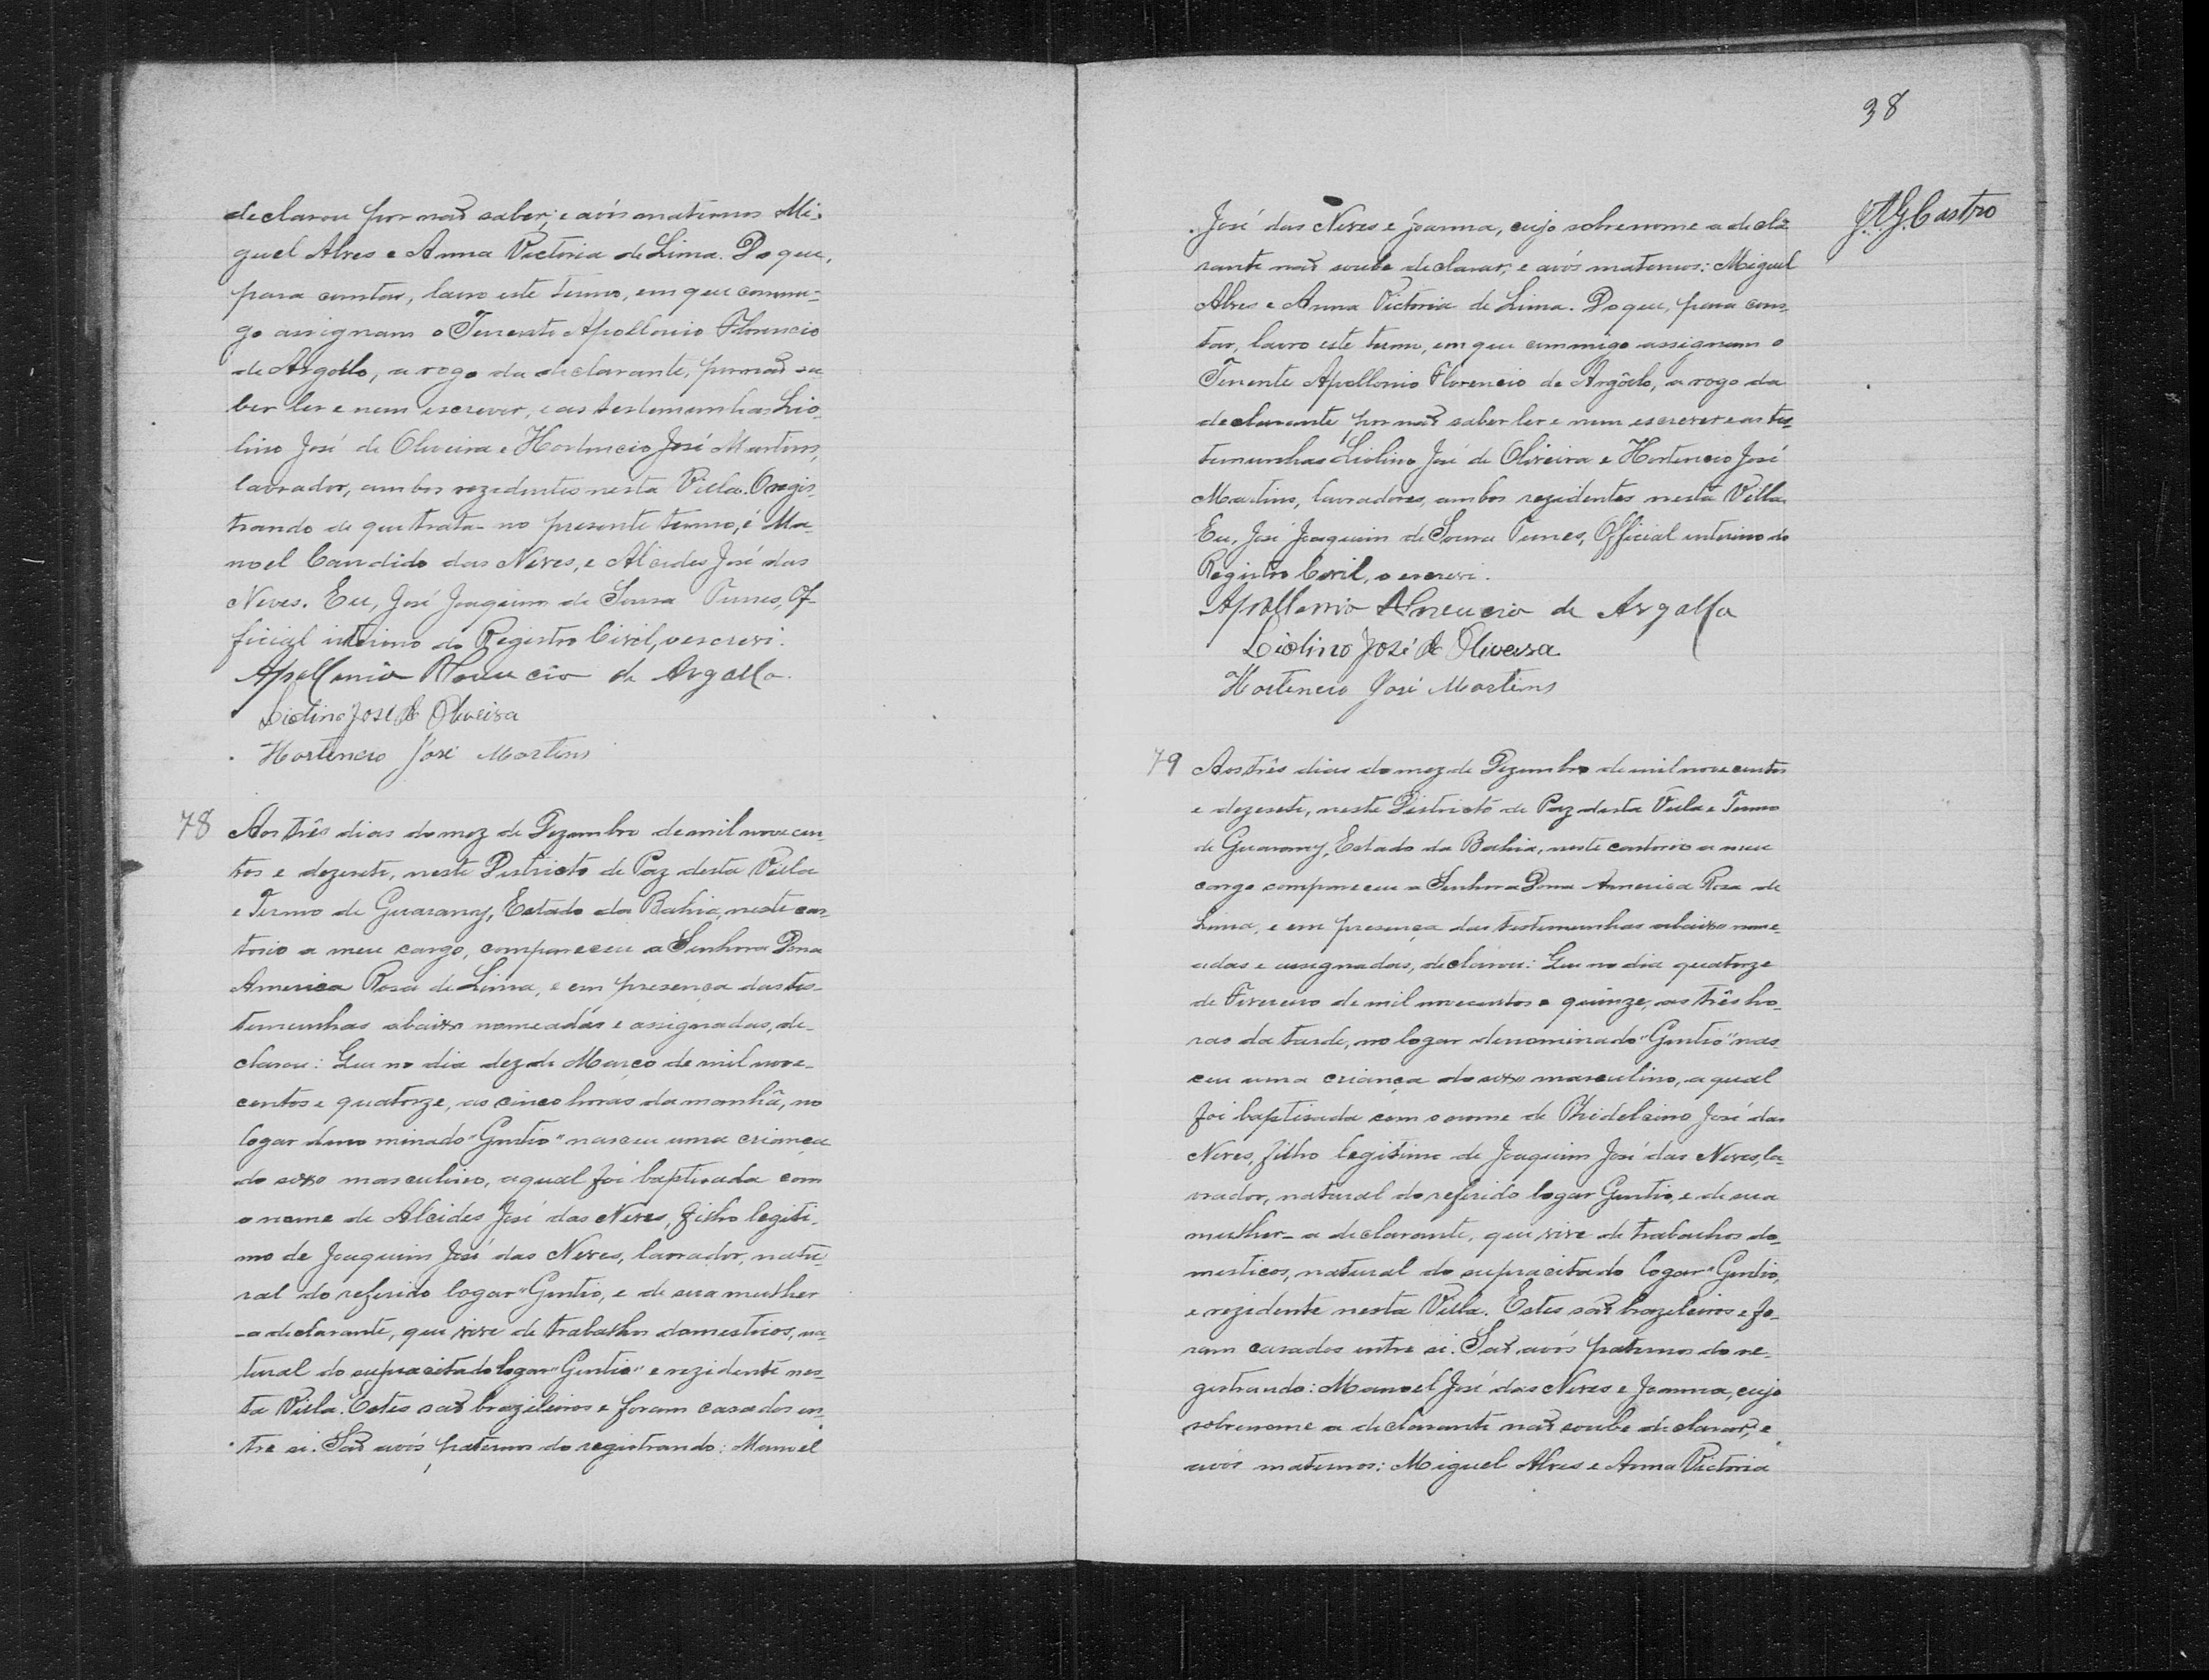 declarou por não saber; e avós maternos Mi-
guel Alves e Anna Victoria de Lima. Do que,
para constar, lavro este termo, em que commi-
go assignam o Tenente Apollonio Florencio
de Argollo, a rogo da declarante, por não sa-
ber ler e nem escrever, e as testemunhas Lio-
lino José de Oliveira e Hortencio José Martins,
lavrador, ambos rezidentes nesta Villa. O regis-
trando de que trata-no presente termo, é Ma-
noel Candido das Neves, e Alcides José das
Neves. Eu, José Joaquim de Sousa Tunes, Of-
ficial interino do Registro Civil, o escrevi.
Apollonio Florencio de Argollo.
Liolino José de Oliveira
Hortencio José Martins
78 Aos três dias do mez de Dezembro de mil nove cen-
tos e dezesete, neste Districto de Paz desta Villa
e Termo de Guarany, Estado da Bahia, neste car-
torio a meu cargo, compareceu a Senhora Dona
America Rosa de Lima, e em presença das tes-
temunhas abaixo nomeadas e assignadas, de-
clarou: Que no dia dez de Março de mil nove-
centos e quatorze, as cinco horas da manhã, no
logar deno minado "Gentio" nasceu uma criança
do sexo masculino, a qual foi baptisada com
o nome de Alcides José das Neves, filho legiti-
mo de Joaquim José das Neves, lavrador, natu-
ral do referido logar "Gentio, e de sua mulher
-a declarante, que vive de trabalhos domesticos, na-
tural do supracitado logar "Gentio" e rezidente nes-
ta Villa. Estes são brazileiros e foram casados en-
tre si. São avós paternos do registrando: Manoel
38
J. A. G. Castro
José das Neves e Joanna, cujo sobrenome a decla-
rante não soube declarar; e avós maternos: Miguel
Alves e Anna Victoria de Lima. Do que, para cons-
tar, lavro este termo, em que commigo assignam o
Tenente Apollonio Florencio de Argôllo, a rogo da
declarante por não saber ler e nem escrever e as tes-
temunhas Liolino José de Oliveira e Hortencio José
Martins, lavradores, ambos rezidentes nesta Villa.
Eu, José Joaquim de Sousa Tunes, Official interino do
Registro Civil, o escrevi.
Apollonio Florencio de Argollo
Liolino José de Oliveira
Hortencio José Martins
79 Aos três dias do mez de Dezembro de mil nove centos
e dezesete, neste Districto de Paz desta Villa e Termo
de Guarany, Estado da Bahia, neste cartorio a meu
cargo compareceu a Senhora Dona America Rosa de
Lima, e em presença das testemunhas abaixo nome-
adas e assignadas, declarou: Que no dia quatorze
de Fevereiro de mil novecentos e quinze, as três ho-
ras da tarde, no logar denominado "Gentio" nas-
ceu uma criança do sexo masculino, a qual
foi baptisada com o nome de Phidelcino José das
Neves, filho legitimo de Joaquim José das Neves, la-
vrador, natural do referido logar Gentio, e de sua
mulher-a declarante, que vive de trabalhos do-
mesticos, natural do supracitado logar "Gentio,
e rezidente nesta Villa. Estes são brazileiros e fo-
ram casados entre si. São avós paternos do re-
gistrando: Manoel José das Neves e Joanna, cujo
sobrenome a declarante não soube declarar; e
avós maternos: Miguel Alves e Anna Victoria